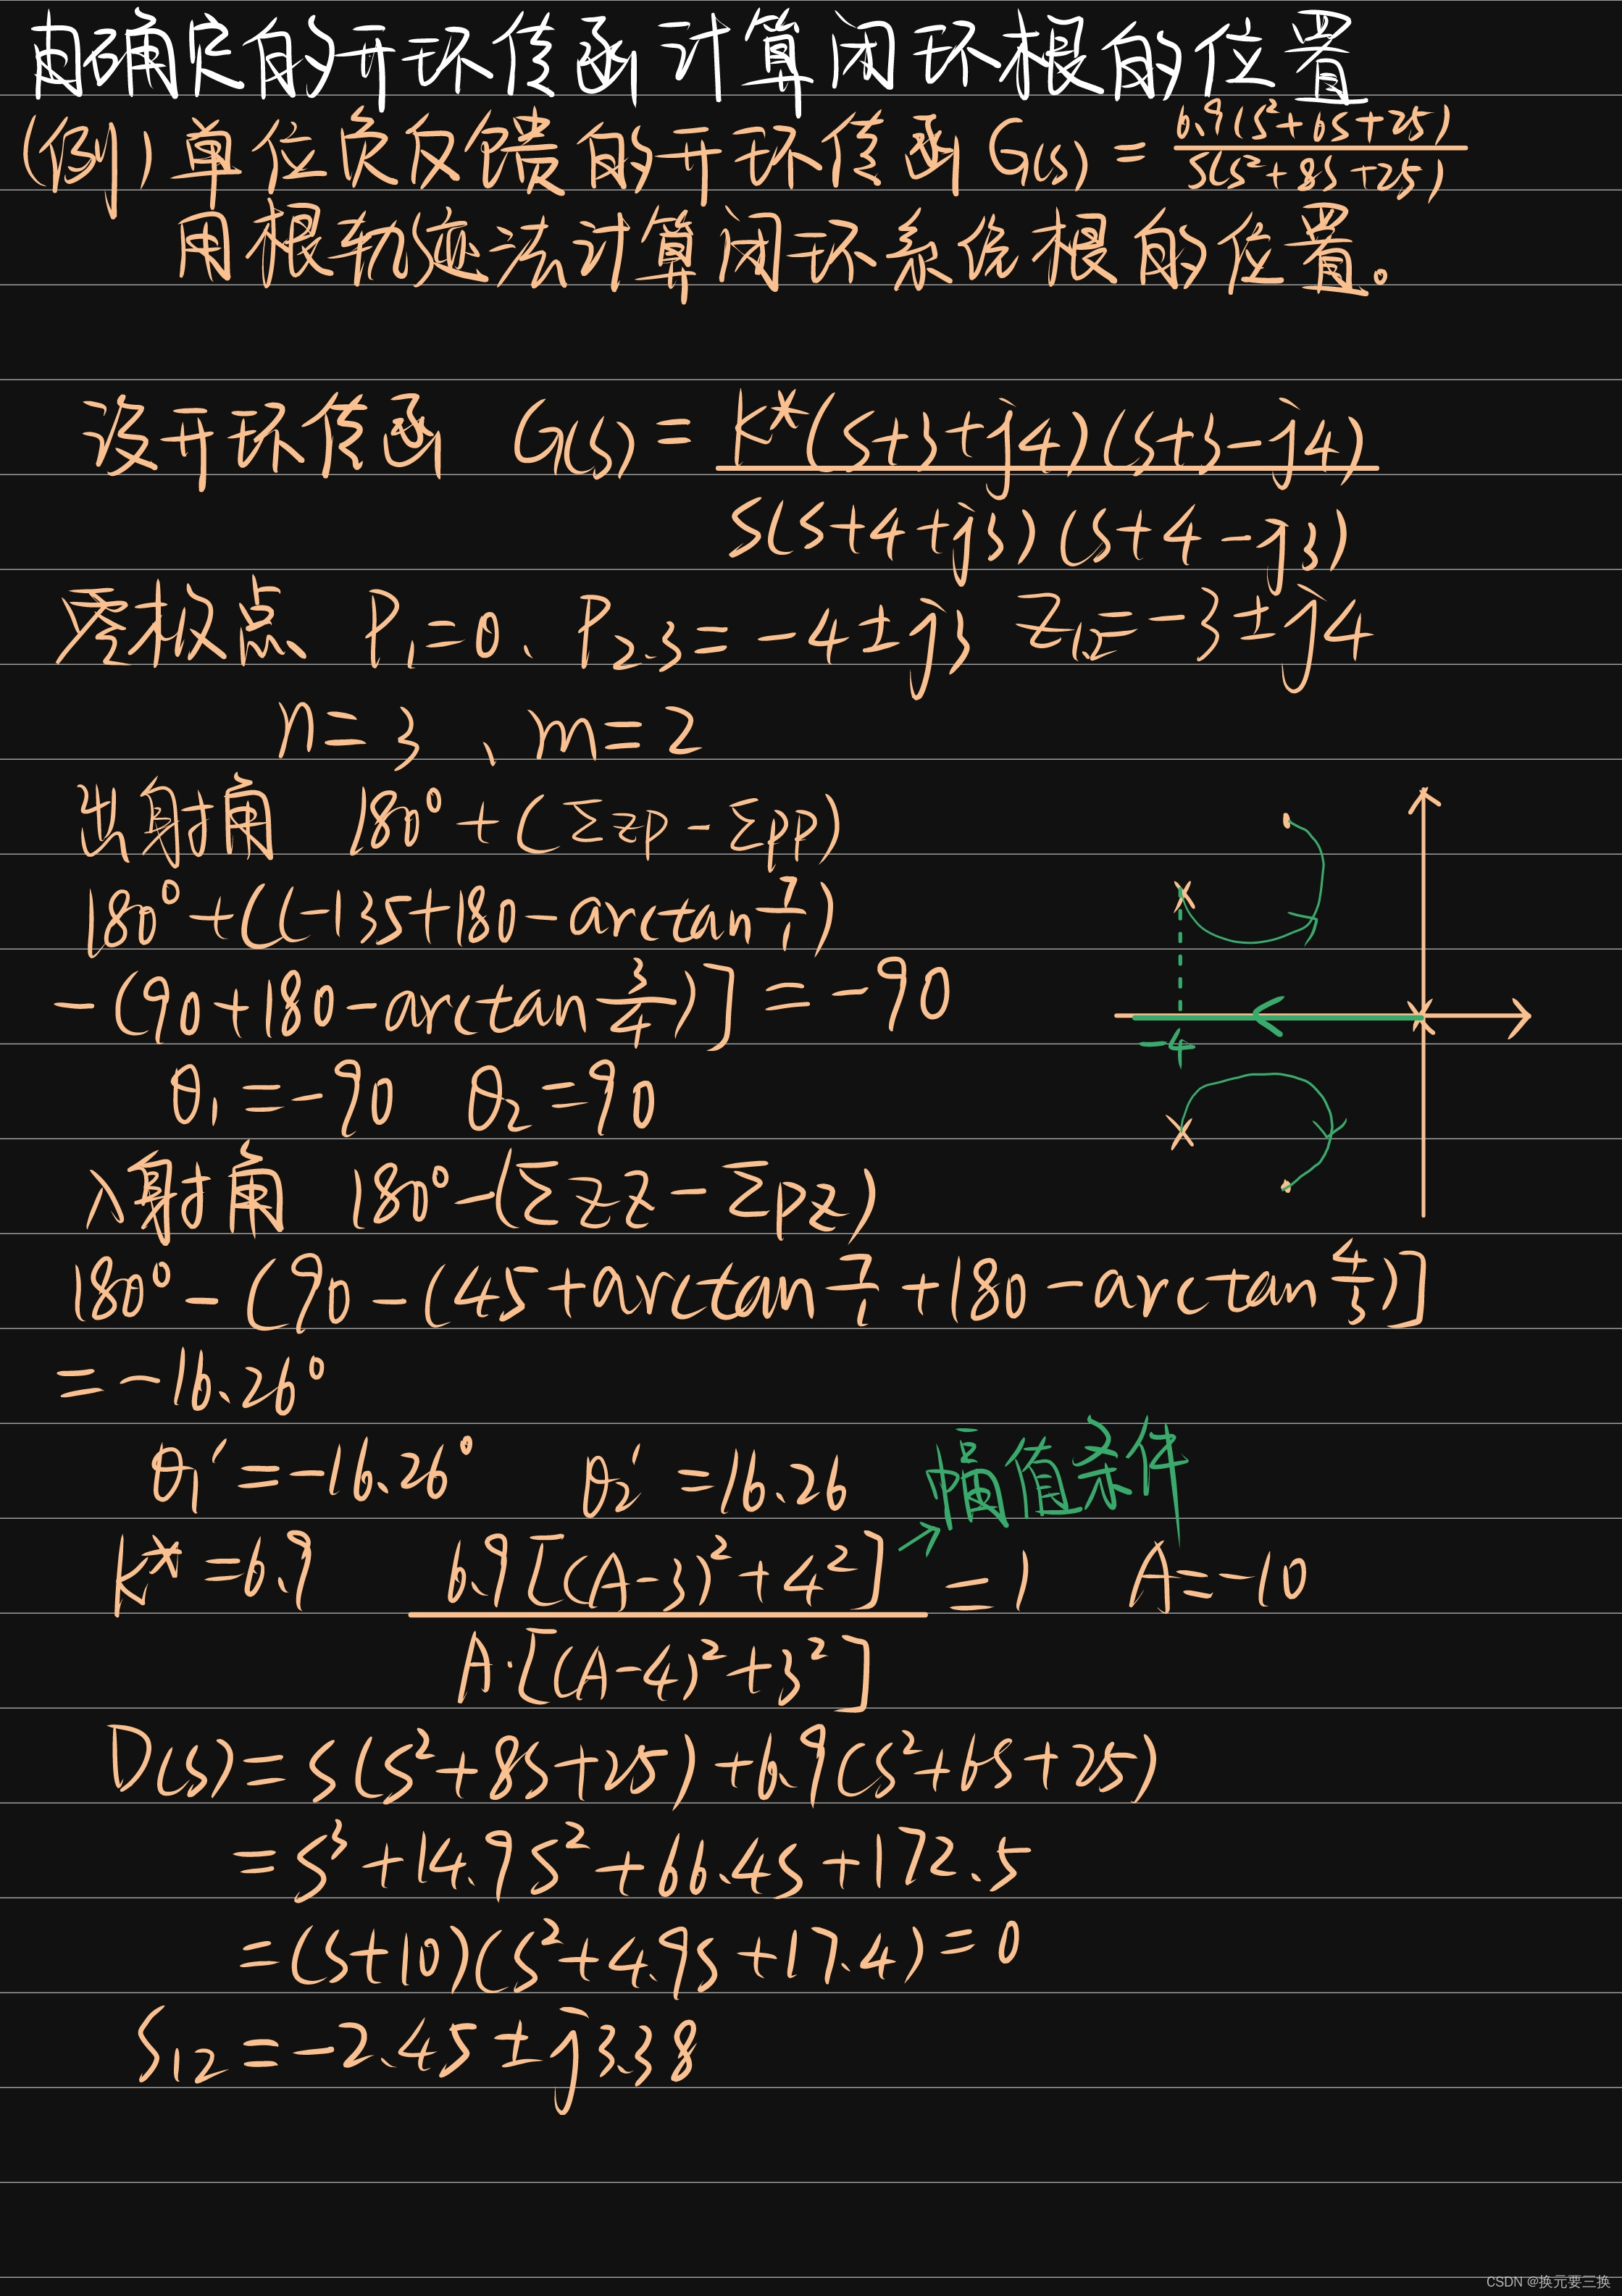 由确定的开环传函计算闭环根的位置
(例)单位负反馈的开环传函 G(s) = 6.9(s²+6s+25) / s(s²+8s+25)
用根轨迹法计算闭环系统根的位置。
设开环传函 G(s) = K*(s+3+j4)(s+3-j4) / s(s+4+j3)(s+4-j3)
零极点 P₁=0、P₂.₃=-4±j3 Z₁.₂=-3±j4
n=3、m=2
出射角 180°+(Σzp-Σpp)
180°+((-135+180-arctan 7/1)
-(90+180-arctan 3/4)]=-90
θ₁=-90 θ₂=90
-4
入射角 180°-(Σzz-Σpz)
180°-(90-(45+arctan 7/1+180-arctan 4/3)]
=-16.26°
θ₁′=-16.26° θ₂′=16.26
幅值条件
K*=6.9 6.9[(A-3)²+4²] / A·[(A-4)²+3²] =1 A=-10
D(s)=s(s²+8s+25)+6.9(s²+6s+25)
=s³+14.9s²+66.4s+172.5
=(s+10)(s²+4.9s+17.4)=0
S₁₂=-2.45±j3.38
CSDN @换元要三换